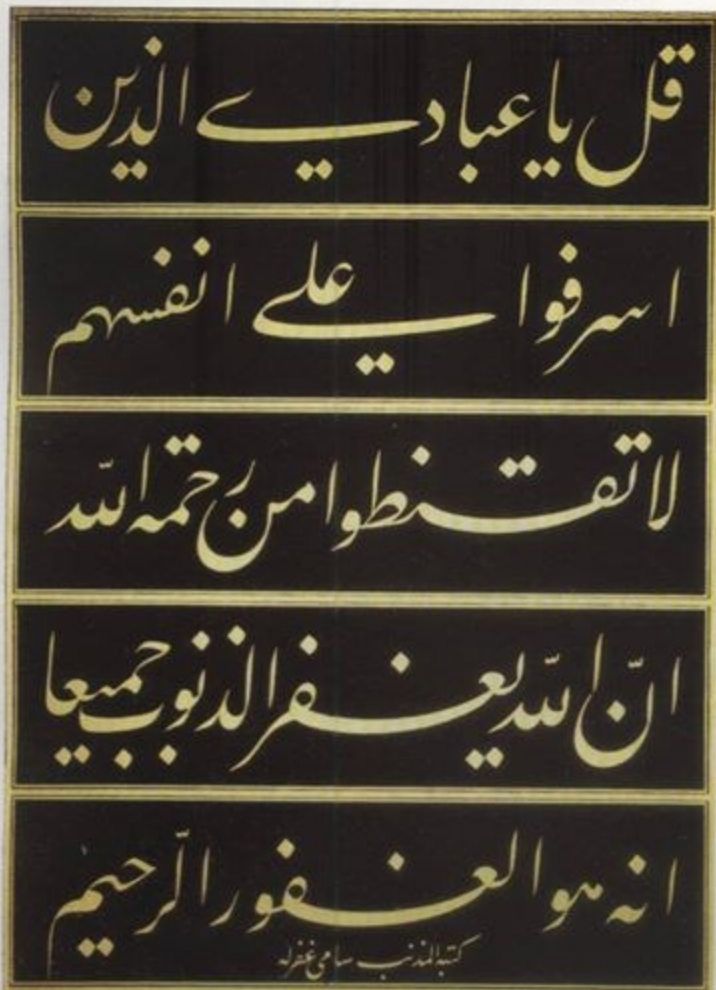 قل يا عبادي الذين
اسرفوا علي انفسهم
لا تقنطوا من رحمة الله
انّ الله يغفر الذنوب جميعا
انه هو الغفور الرّحيم
كتبه المذنب سامي غفرله